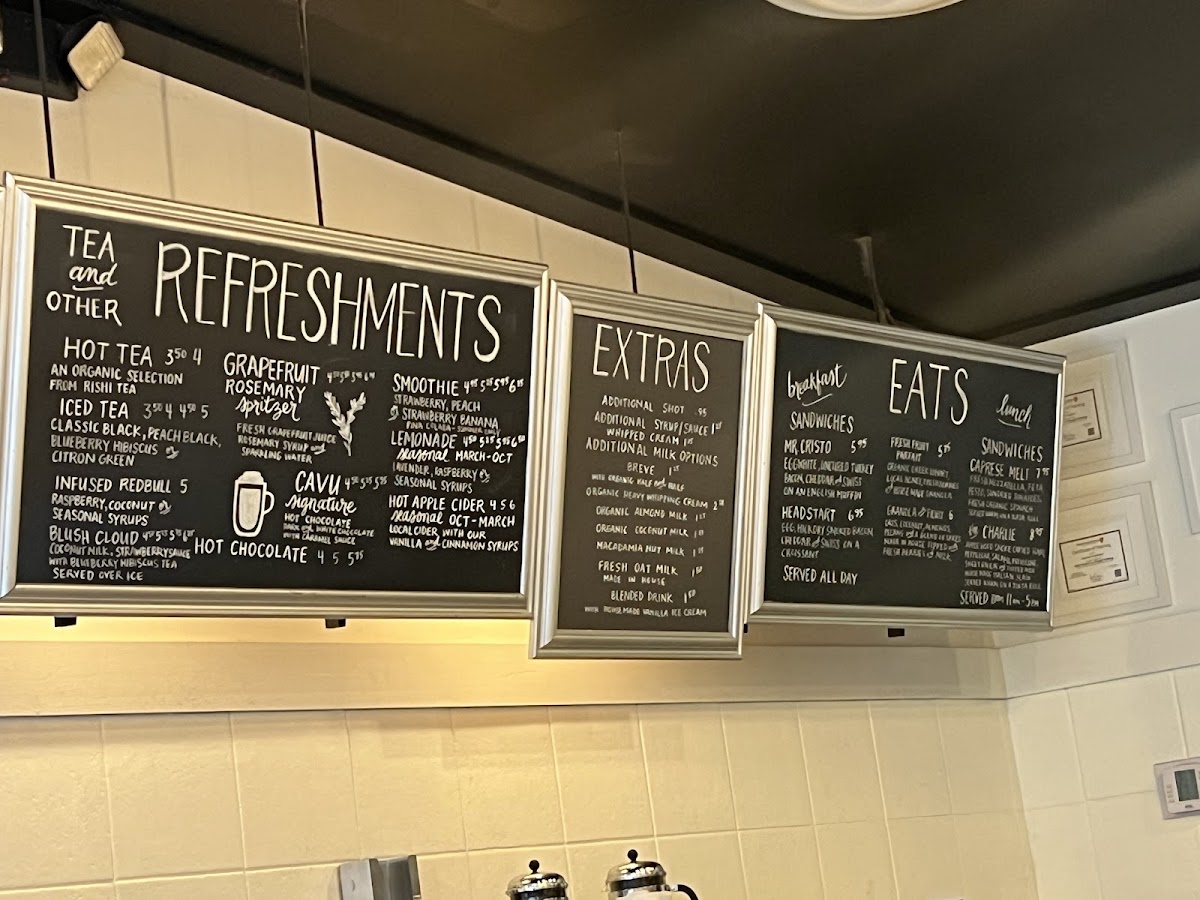 TEA
and
OTHER
REFRESHMENTS
HOT TEA 3⁵⁰ 4
AN ORGANIC SELECTION
FROM RISHI TEA
ICED TEA 3⁵⁰ 4 4⁵⁰ 5
CLASSIC BLACK, PEACH BLACK,
BLUEBERRY HIBISCUS
CITRON GREEN
INFUSED REDBULL 5
RASPBERRY, COCONUT
SEASONAL SYRUPS
BLUSH CLOUD
COCONUT MILK, STRAWBERRY SAUCE
WITH BLUEBERRY HIBISCUS TEA
SERVED OVER ICE
GRAPEFRUIT
ROSEMARY
spritzer
FRESH GRAPEFRUIT JUICE
ROSEMARY SYRUP and
SPARKLING WATER
CAVU
signature
HOT CHOCOLATE
DARK and WHITE CHOCOLATE
WITH CARAMEL SAUCE
HOT CHOCOLATE 4 5 5⁷⁵
SMOOTHIE
STRAWBERRY, PEACH
STRAWBERRY BANANA
PINA COLADA - SUMMER ONLY
LEMONADE
seasonal MARCH-OCT
LAVENDER, RASPBERRY
SEASONAL SYRUPS
HOT APPLE CIDER 4 5 6
seasonal OCT-MARCH
LOCAL CIDER WITH OUR
VANILLA and CINNAMON SYRUPS
EXTRAS
ADDITIONAL SHOT .95
ADDITIONAL SYRUP/SAUCE
WHIPPED CREAM
ADDITIONAL MILK OPTIONS
BREVE
WITH ORGANIC HALF and HALF
ORGANIC HEAVY WHIPPING CREAM
ORGANIC ALMOND MILK
ORGANIC COCONUT MILK
MACADAMIA NUT MILK
FRESH OAT MILK 1⁵⁰
MADE IN HOUSE
BLENDED DRINK 1⁵⁰
WITH HOUSEMADE VANILLA ICE CREAM
breakfast
EATS
lunch
SANDWICHES
MR. CRISTO 5⁹⁵
EGG WHITE, UNCURED TURKEY
BACON, CHEDDAR and SWISS
ON AN ENGLISH MUFFIN
HEADSTART 6⁹⁵
EGG, HICKORY SMOKED BACON,
CHEDDAR and SWISS ON A
CROISSANT
SERVED ALL DAY
FRESH FRUIT 5⁷⁵
PARFAIT
ORGANIC GREEK YOGURT,
LOCAL HONEY, FRESH BERRIES
and HOUSE MADE GRANOLA
GRANOLA and FRUIT 6
OATS, COCONUT, ALMONDS,
FRESH BERRIES and MILK
SANDWICHES
CAPRESE MELT 7⁹⁵
FRESH MOZZARELLA, FETA,
PESTO, SUNDRIED TOMATOES,
FRESH ORGANIC SPINACH
CHARLIE 8⁹⁵
SERVED 11am-5pm